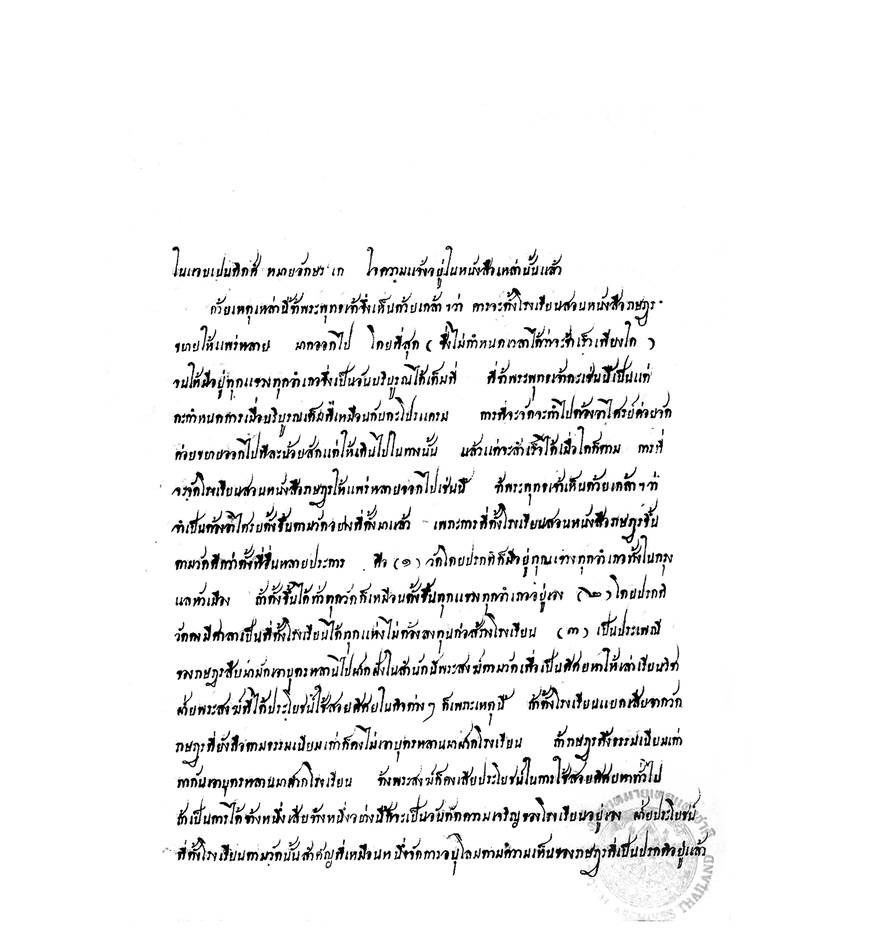 ในแอบเปนดิกส์ หมายอักษร เก ใจความแจ้งอยู่ในหนังสือเหล่านั้นแล้ว
ด้วยเหตุเหล่านี้ข้าพระพุทธเจ้าจึ่งเห็นด้วยเกล้าฯว่า การจะตั้งโรงเรียนสอนหนังสือราษฎร
ขยายให้แพร่หลาย มากออกไป โดยที่สุด (ซึ่งไม่กำหนดเวลาได้ว่าจะสำเร็จเพียงใด)
จนให้มีอยู่ทุกแขวงทุกอำเภอซึ่งเป็นอันบริบูรณ์ได้เต็มที่ ที่ข้าพระพุทธเจ้ากะเช่นนี้เป็นแต่
กะกำหนดการเมื่อบริบูรณเต็มที่เหมือนกับกะโปรแครม การที่จะจัดจะทำไปต้องอาไศรย์ค่อยจัด
ค่อยขยายออกไปทีละน้อยสุดแต่ให้เดินไปในทางนั้น แล้วแต่จะสำเร็จได้เมื่อใดก็ตาม การที่
จะจัดโรงเรียนสอนหนังสือราษฎรให้แพร่หลายออกไปเช่นนี้ ข้าพระพุทธเจ้าเห็นด้วยเกล้าฯว่า
จำเป็นต้องอาไศรยตั้งขึ้นตามวัดอย่างที่ตั้งมาแล้ว เพราะการที่ตั้งโรงเรียนสอนหนังสือราษฎรขึ้น
ตามวัดดีกว่าตั้งที่อื่นหลายประการ คือ (๑) วัดโดยปรกติก็มีอยู่ทุกแขวงทุกอำเภอทั้งในกรุง
แลหัวเมือง ถ้าตั้งขึ้นได้ทั่วทุกวัดก็เหมือนตั้งขึ้นทุกแขวงทุกอำเภออยู่เอง (๒) โดยปรกติ
วัดคงมีศาลาเป็นที่ตั้งโรงเรียนได้ทุกแห่งไม่ต้องลงทุนก่อสร้างโรงเรียน (๓) เป็นประเพณี
ของราษฎรสืบมามักเอาบุตรหลานไปฝากฝังในสำนักนี์พระสงฆ์ตามวัดเพื่อเป็นศิศยหาให้เล่าเรียนวิชา
ฝ่ายพระสงฆ์ก็ได้ประโยชน์ใช้สอยศิศยในกิจต่างๆ ก็เพราะเหตุนี้ ถ้าตั้งโรงเรียนแยกเสียจากวัด
ราษฎรที่ยังถือตามธรรมเนียมเก่าก็คงไม่เอาบุตรหลานมาฝากโรงเรียน ถ้าราษฎรทิ้งธรรมเนียมเก่า
พากันเอาบุตรหลานมาฝากโรงเรียน ข้างพระสงฆ์ก็คงเสียประโยชน์ในการใช้สอยศิศยหาทั่วไป
ถ้าเป็นการได้ข้างหนึ่งเสียข้างหนึ่งอย่างนี้ก็จะเป็นอันตัดความเจริญของโรงเรียนอยู่เอง ฝ่ายประโยชน์
ที่ตั้งโรงเรียนตามวัดนั้นสำคัญที่เหมือนหนึ่งจัดการอนุโลมตามความเห็นของราษฎรที่เป็นปรกติอยู่แล้ว
ARCHIVES THAILAND